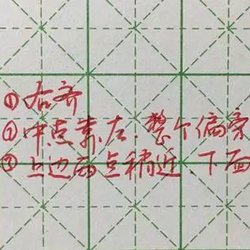 ①右齐
②中点靠左.整个偏旁
③上边两点稍近 下面